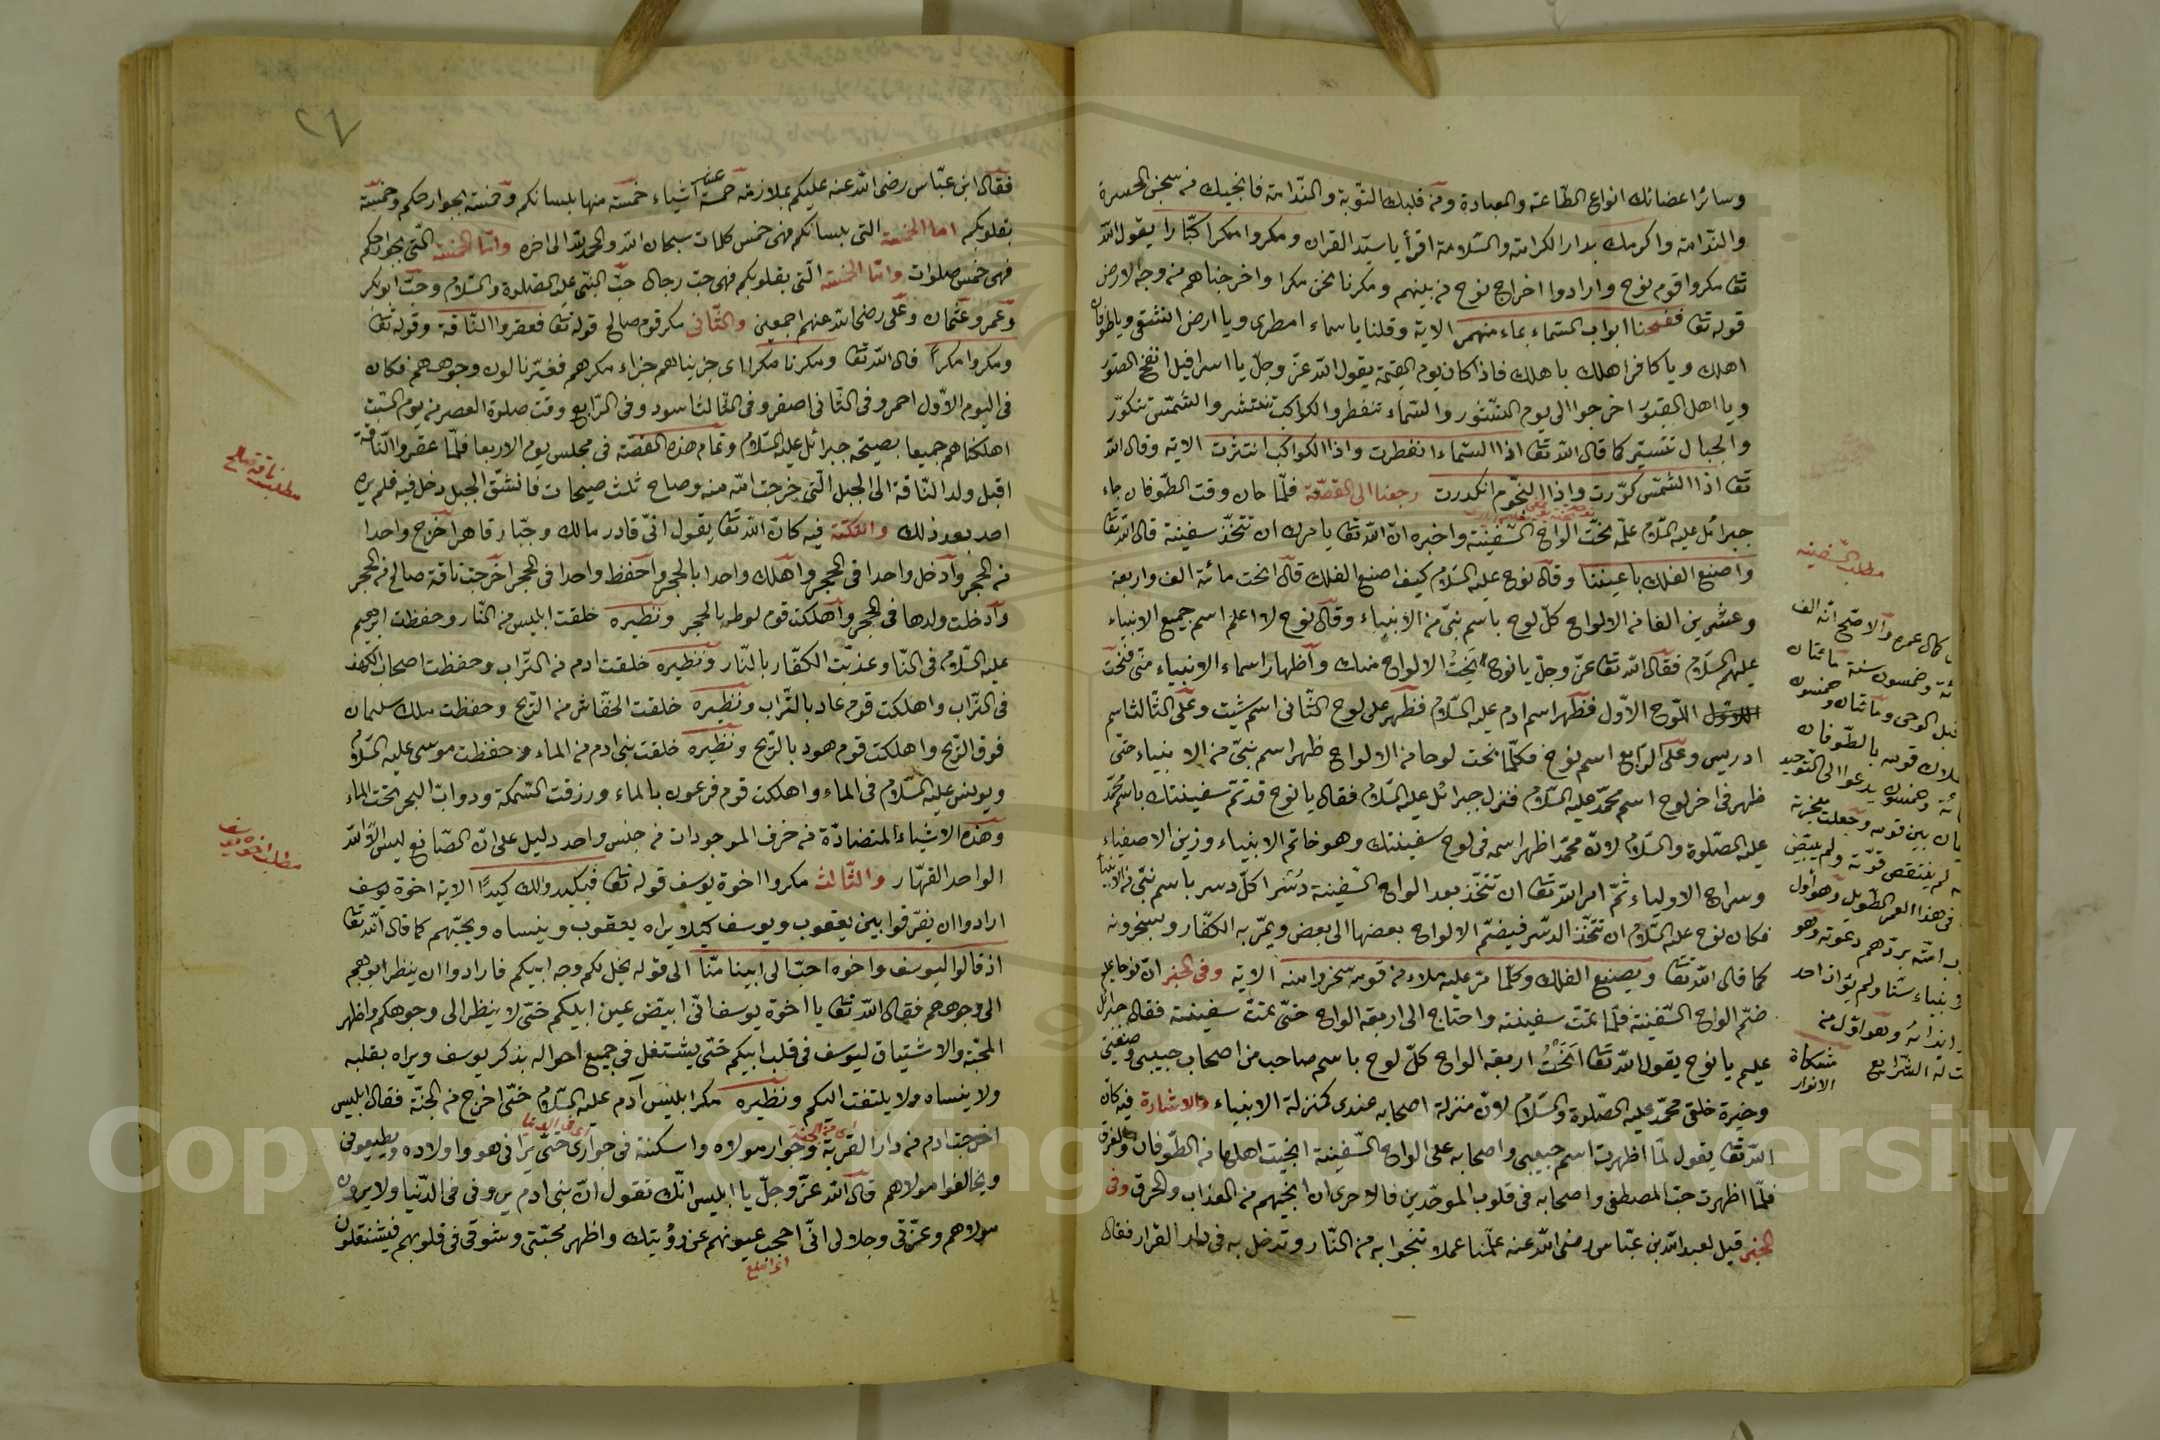 وسائر اعضائك انواع الطاعة والعبادة ومن قلبك التوبة والندامة فانجيك من سجن الحسرة
والندامة واكرمك بدار الكرامة والسلامة اقرأ يا سيد القران ومكروا مكرا كبارا يقول الله
تعا مكروا قوم نوح وارادوا اخراج نوح من بينهم ومكرنا نحن مكرا واخرجناهم من وجه الارض
قوله تعا ففتحنا ابواب السماء بماء منهمر الاية وقلنا يا سماء امطرى ويا ارض انشقى ويا طوفان
اهلك ويا كافر اهلك باهلك فاذا كان يوم القيمة يقول الله عز وجل يا اسرافيل انفخ الصور
ويا اهل القبور اخرجوا الى يوم النشور والسماء تنفطر والكواكب تنتشر والشمس تتكور
والجبال تتسير كما قال الله تعا اذا السماء انفطرت واذا الكواكب انتثرت الاية وقال الله
تعا اذا الشمس كورت واذا النجوم انكدرت رجعنا الى القصة فلما حان وقت الطوفان جاء
جبرائل عليه السلام علمه نحت الواح السفينة واخبره ان الله تعا يامرك ان تتخذ سفينة قال الله تعا
واصنع الفلك باعيننا وقال نوح عليه السلام كيف اصنع الفلك قال انحت مائة الف واربعة
وعشرين الفا من الالواح كل لوح باسم نبى من الانبياء وقال نوح لا اعلم اسم جميع الانبياء
عليهم السلام فقال الله تعا عز وجل يا نوح انحت الالواح منك واظهار اسماء الانبياء منى فنحت
اللوح الاول فظهر اسم ادم عليه السلام فظهر على لوح الثانى اسم شيث وعلى الثالث اسم
ادريس وعلى الرابع اسم نوح فكلما نحت لوحا من الالواح ظهر اسم نبى من الانبياء حتى
ظهر فى اخر لوح اسم محمد عليه السلام فنزل جبرائل عليه السلام فقال يا نوح قد تم سفينتك باسم محمد
عليه الصلوة والسلام لان محمد اظهر اسمه فى لوح سفينتك وهو خاتم الانبياء وزين الاصفياء
وسراج الاولياء ثم امر الله تعا ان تتخذ بعد الواح السفينة دسرا كل دسر باسم نبى من الانبياء
فكان نوح عليه السلام ان تتخذ الدسر فيضم الالواح بعضها الى بعض ويمر به الكفار ويسخرونه
كما قال الله تعا ويصنع الفلك وكلما مر عليه ملاء من قومه سخروا منه الاية وفى الخبر ان نوحا عليه
ضم الواح السفينة فلما تمت سفينة واحتاج الى اربعة الواح حتى تمت سفينة فقال جبرائل
عليم يا نوح يقول الله تعا انحت اربعة الواح كل لوح باسم صاحب من اصحاب حبيبى وصفيى
وخيرة خلقى محمد عليه الصلوة والسلام لان منزلة اصحابه عندى كمنزلة الانبياء والاشارة فيه كان
الله تعا يقول لما اظهرت اسم حبيبى واصحابه على الواح السفينة انجيت اهلها من الطوفان والغرق
فلما اظهرت حب المصطفى واصحابه فى قلوب الموحدين فالاحرى ان انجيهم من العذاب والحرق وفى
الخبر قيل لعبد الله بن عباس رضى الله عنه علمنا عملا ننجوا به من النار وندخل به فى دار القرار فقال
مطلب السفينة
كمال عمره والاصح انه الف
وخمسون سنة مائتان
قبل الوحى ومائتان وخمسون
قومه بالطوفان
وخمسون يدعوا الى التوحيد
بين قومه وجعلت معجزته
لم ينتقص قوته ولم يبيض
فى هذا العمر الطويل وهو اول
امته بردهم دعوته وهو
الانبياء سنا ولم يؤذ احد
ايذائه وهو اول من
له الشرايع
مشكاة
الانوار
٨٢
فقال ابن عباس رضى الله عنه عليكم بملازمة خمسة عشر اشياء خمسة منها بلسانكم وخمسة بجوارحكم وخمسة
بقلوبكم اما الخمسة التى بلسانكم فهى خمس كلمات سبحان الله والحمد لله الى اخره واما الخمسة التى بجوارحكم
فهى خمس صلوات واما الخمسة التى بقلوبكم فهى حب رجال حب النبى عليه الصلوة والسلام وحب ابو بكر
وعمر وعثمان وعلى رضى الله عنهم اجمعين والثانى مكر قوم صالح قوله تعا فعقروا الناقة وقوله تعا
ومكروا مكرا قال الله تعا ومكرنا مكرا اى جزيناهم جزاء مكرهم فغيرنا لون وجوههم فكان
فى اليوم الاول احمر وفى الثانى اصفر وفى الثالث اسود وفى الرابع وقت صلوة العصر من يوم السبت
اهلكناهم جميعا بصيحة جبرائل عليه السلام وتمام هذه القصة فى مجلس يوم الاربعا فلما عقروا الناقة
اقبل ولد الناقة الى الجبل التى خرجت امه منه وصاح ثلث صيحات فانشق الجبل دخل فيه فلم يره
احد بعد ذلك والنكتة فيه كان الله تعا يقول انى قادر مالك وجبار قاهر اخرج واحدا
من الحجر وادخل واحدا فى الحجر واهلك واحدا بالحجر واحفظ واحدا فى الحجر اخرجت ناقة صالح من الحجر
وادخلت ولدها فى الحجر واهلكت قوم لوط بالحجر ونظيره خلقت ابليس من النار وحفظت ابرهيم
عليه السلام فى النار وعذبت الكفار بالنار ونظيره خلقت ادم من التراب وحفظت اصحاب الكهف
فى التراب واهلكت قوم عاد بالتراب ونظيره خلقت الخفاش من الريح وحفظت ملك سليمان
فوق الريح واهلكت قوم هود بالريح ونظيره خلقت بنى ادم من الماء وحفظت موسى عليه السلام
ويونس عليه السلام فى الماء واهلكت قوم فرعون بالماء ورزقت السمكة ودواب البحر تحت الماء
وهذه الاشياء المتضادة من خرف الموجودات من جنس واحد دليل على ان الصانع ليس الا الله
الواحد القهار والثالث مكروا اخوة يوسف قوله تعا فيكيدوا لك كيدا الاية اخوة يوسف
ارادوا ان يفرقوا بين يعقوب ويوسف كيلا يراه يعقوب وينساه ويحبهم كما قال الله تعا
اذ قالوا ليوسف واخوه احب الى ابينا منا الى قوله يخل لكم وجه ابيكم فارادوا ان ينظر ابوهم
الى وجوههم فقال الله تعا يا اخوة يوسف انى ابيض عين ابيكم حتى لا ينظر الى وجوهكم واظهر
المحبة والاشتياق ليوسف فى قلب ابيكم حتى يشتغل فى جميع احواله بذكر يوسف ويراه بقلبه
ولا ينساه ولا يلتفت اليكم ونظيره مكر ابليس آدم عليه السلام حتى اخرج من الجنة فقال ابليس
اخرجت ادم من دار القربة وجوار مولاه واسكنته فى جوارى حتى يرانى هو واولاده ويطيعونى
ويخالفوا مولاهم قال الله عز وجل يا ابليس انك تقول ان بنى ادم يرونى فى الدنيا ولا يرون
مولاهم وعزتى وجلالى انى احجب عيونهم عن رؤيتك واظهر محبتى وشوقى فى قلوبهم فيشتغلون
مطلب ناقة صالح
مطلب اخوة يوسف
Copyright © King Saud University